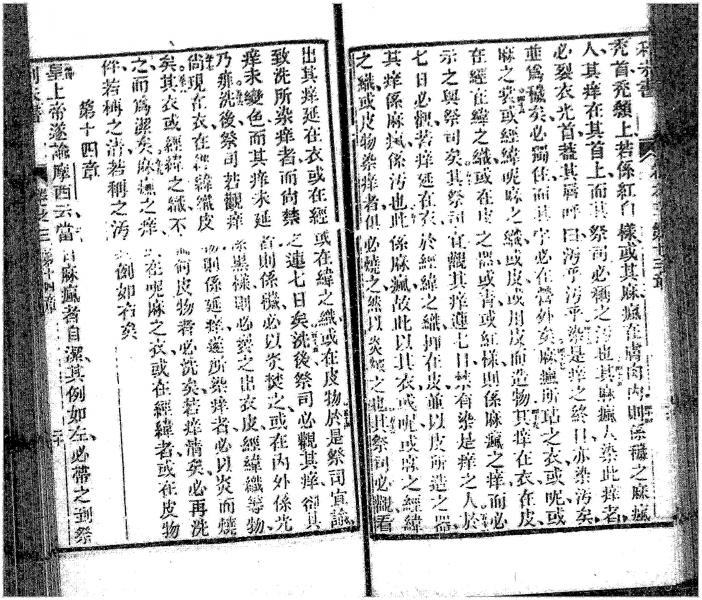 利未書
禿首禿額上若係紅白樣或其痳瘋在膚肉內則係穢之麻瘋
人其痒在其首上而其祭司必稱之污也其痳瘋人染此痒者
必裂衣光首蓋其唇呼曰污乎污乎染是痒之終日亦染污矣
並為穢矣必獨住而其宇必在營外矣麻瘋所玷之衣或呢或
麻之裘或經緯呢麻之織或皮或用皮而造物其痒在衣在皮
在經在緯之織或在皮之器或青或紅樣則係麻瘋之痒而必
示之與祭司矣其祭司宜觀其痒連七日禁有染是痒之人於
七日必觀若痒延在衣於經緯之織抑在皮並以皮所造之器
其痒係麻瘋係污也此係麻瘋故此以其衣或呢或麻之經緯
之織或皮物染痒者俱必燒之然以炎燬之也其祭司必觀看
出其痒延在衣或在經或在緯之織或在皮物於是祭司宜諭
致洗所染痒者而尚禁之連七日矣洗後祭司必觀其痒卻其
痒未變色而其痒未延則係穢必以炎焚之或在內外係光
乃洗後祭司若觀痒係黑樣則必裂之出衣皮經緯織等物
尚現在衣在經緯織皮物則係延痒遂所染痒者必以炎而燒
矣其衣或經緯之織不論何皮物者必洗矣若痒清矣必再洗
之而為潔矣麻瘋之痒在呢麻之衣或在經緯者或在皮物
件若稱之潔若稱之污其例如右矣
第十四章
皇上帝遂諭摩西云當日麻瘋者自潔其例如左必帶之到祭
利未書 卷之三 第十四章